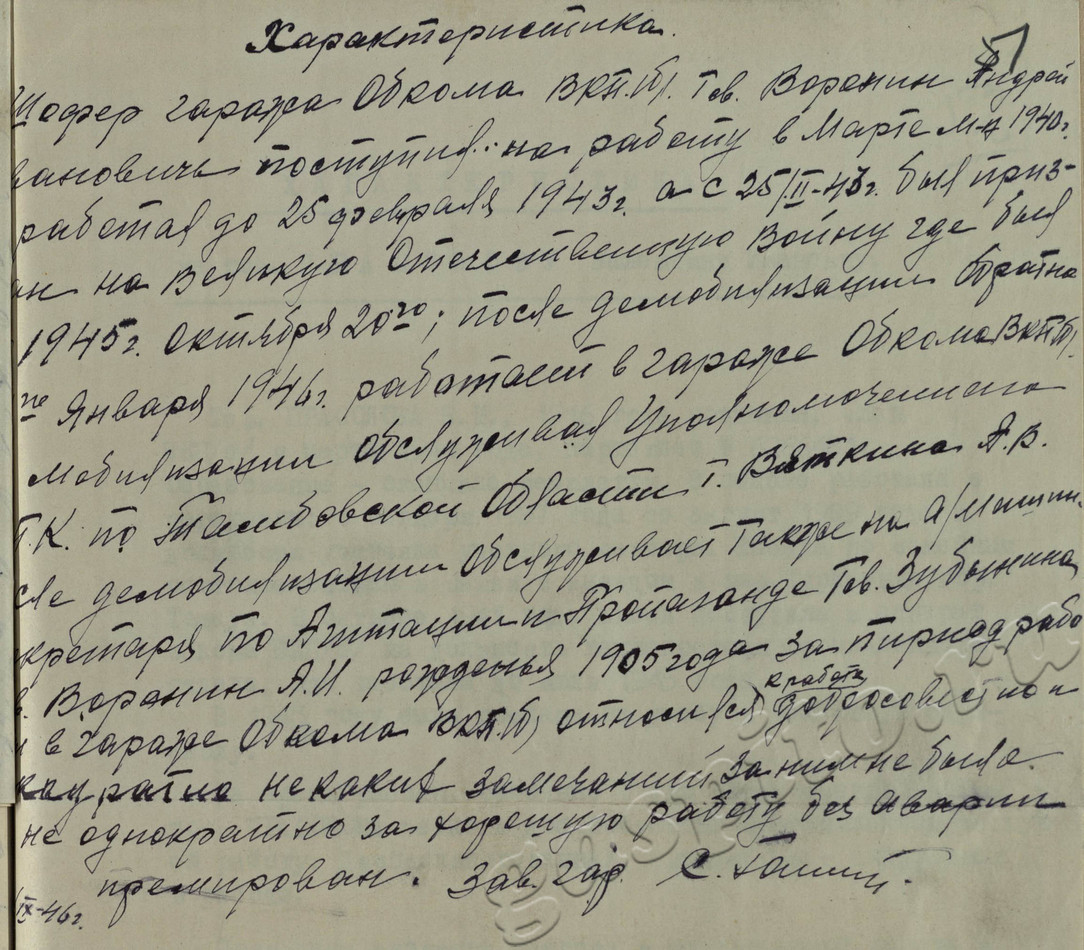 Характеристика.
Шофер гаража Обкома ВКП.(б). Тов. Воранин Андрей
вановичь поступил на работу в Марте м-це 1940г.
работал до 25 февраля 1943г. а с 25/II-43г. был приз-
ан на Великую Отечественную войну где был
1945г. октября 20го; после демобилизации обратно
по Января 1946г. работает в гараже Обкома ВКП(б).
мобилизации обслуживая Уполномоченного
П.К. по Тамбовской Области т. Вяткина А.В.
сле демобилизации обслуживает также на а/машин.
кретаря по Агитации и Пропаганде Тов. Зубынина
в. Воранин А.И. рожденья 1905 года за период рабо
и в гараже Обкома ВКП.(б) относился к работе добросовестно и
ккуратно некаких замечаний за ним не было.
не однократно за хорошую работу без аварии
премирован. Зав. гар.
IX-46г.
gaspito.ru